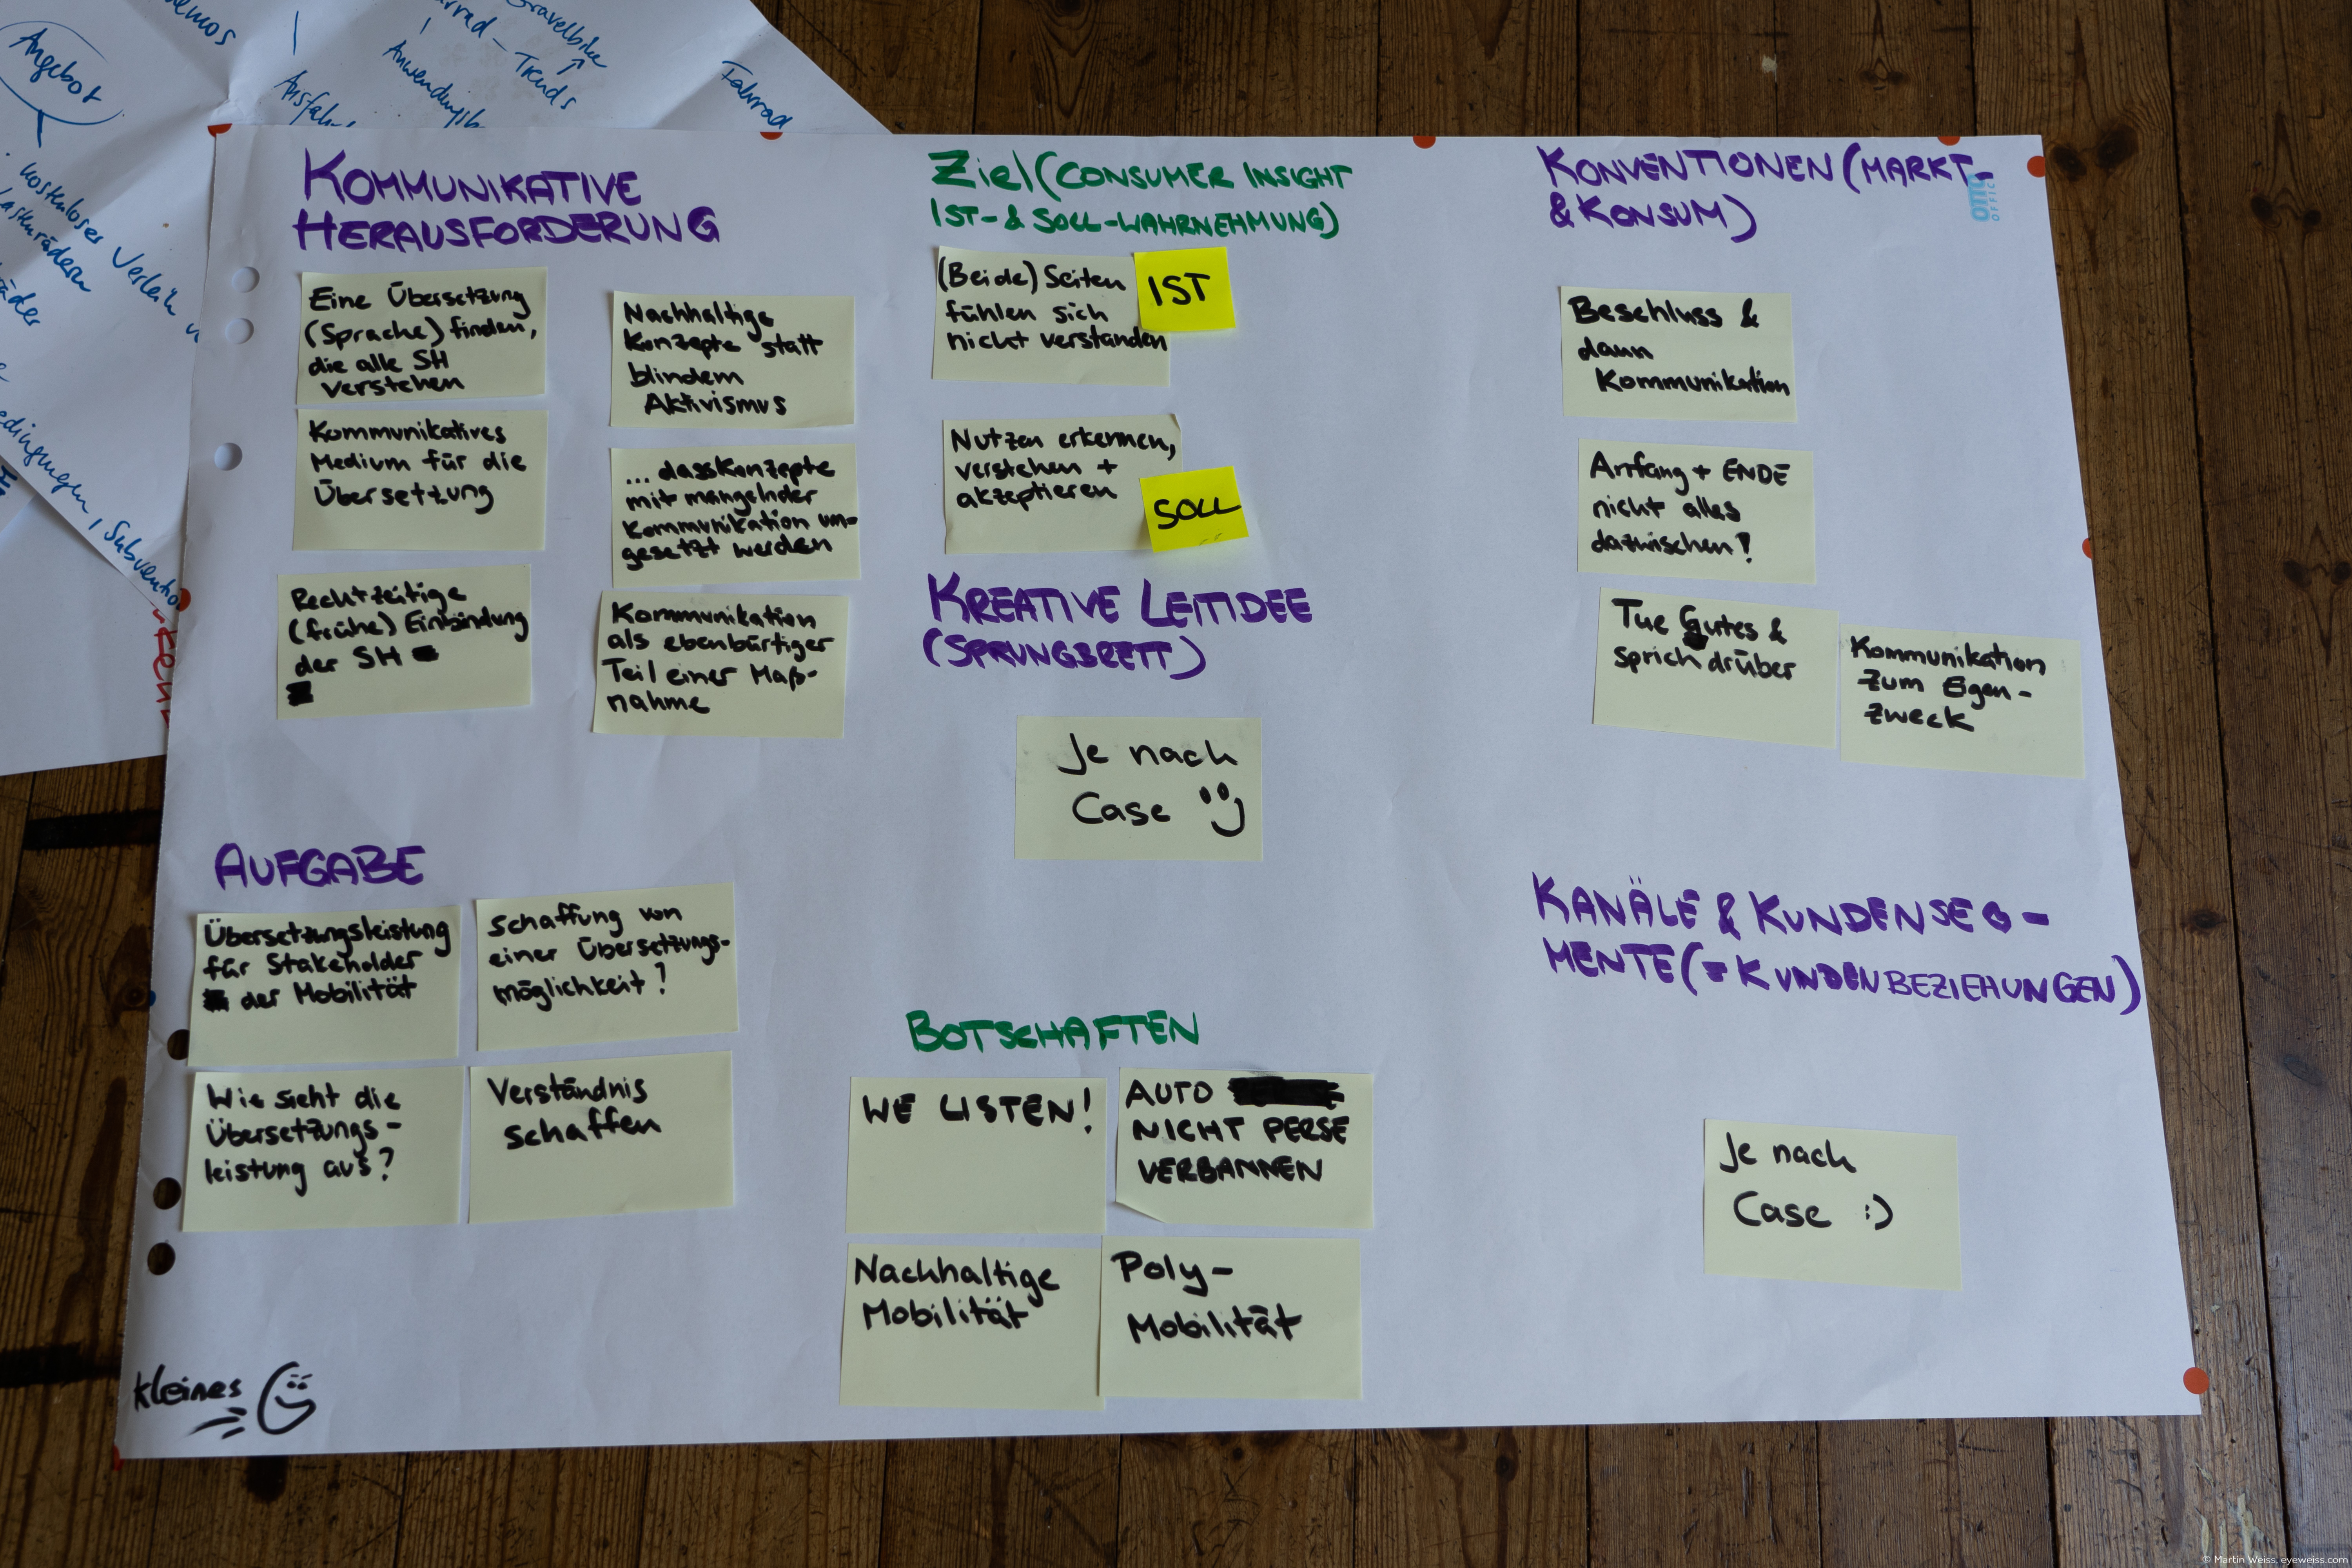 Angebot
Trends
Fahrrad
kostenloser Verleih v
KOMMUNIKATIVE
HERAUSFORDERUNG
Eine Übersetzung
(Sprache) finden,
die alle SH
verstehen
Nachhaltige
Konzepte statt
blindem
Aktivismus
Kommunikatives
Medium für die
Übersetzung
... dass Konzepte
mit mangelnder
Kommunikation um-
gesetzt werden
Rechtzeitige
(frühe) Einbindung
der SH
Kommunikation
als ebenbürtiger
Teil einer Maß-
nahme
AUFGABE
Übersetzungsleistung
für Stakeholder
der Mobilität
Schaffung von
einer Übersetzungs-
möglichkeit?
Wie sieht die
Übersetzungs-
leistung aus?
Verständnis
schaffen
kleines
Ziel (CONSUMER INSIGHT
IST- & SOLL-WAHRNEHMUNG)
(Beide) Seiten
fühlen sich
nicht verstanden
IST
Nutzen erkennen,
verstehen +
akzeptieren
SOLL
KREATIVE LEITIDEE
(SPRUNGBRETT)
Je nach
Case
BOTSCHAFTEN
WE LISTEN!
AUTO
NICHT PERSE
VERBANNEN
Nachhaltige
Mobilität
Poly-
Mobilität
KONVENTIONEN (MARKT-
& KONSUM)
OTTO
OFFICE
Beschluss &
dann
Kommunikation
Anfang + ENDE
nicht alles
dazwischen!
Tue Gutes &
sprich drüber
Kommunikation
zum Eigen-
zweck
KANÄLE & KUNDENSEG-
MENTE (=KUNDENBEZIEHUNGEN)
Je nach
Case :)
© Martin Weiss, eyeweiss.com